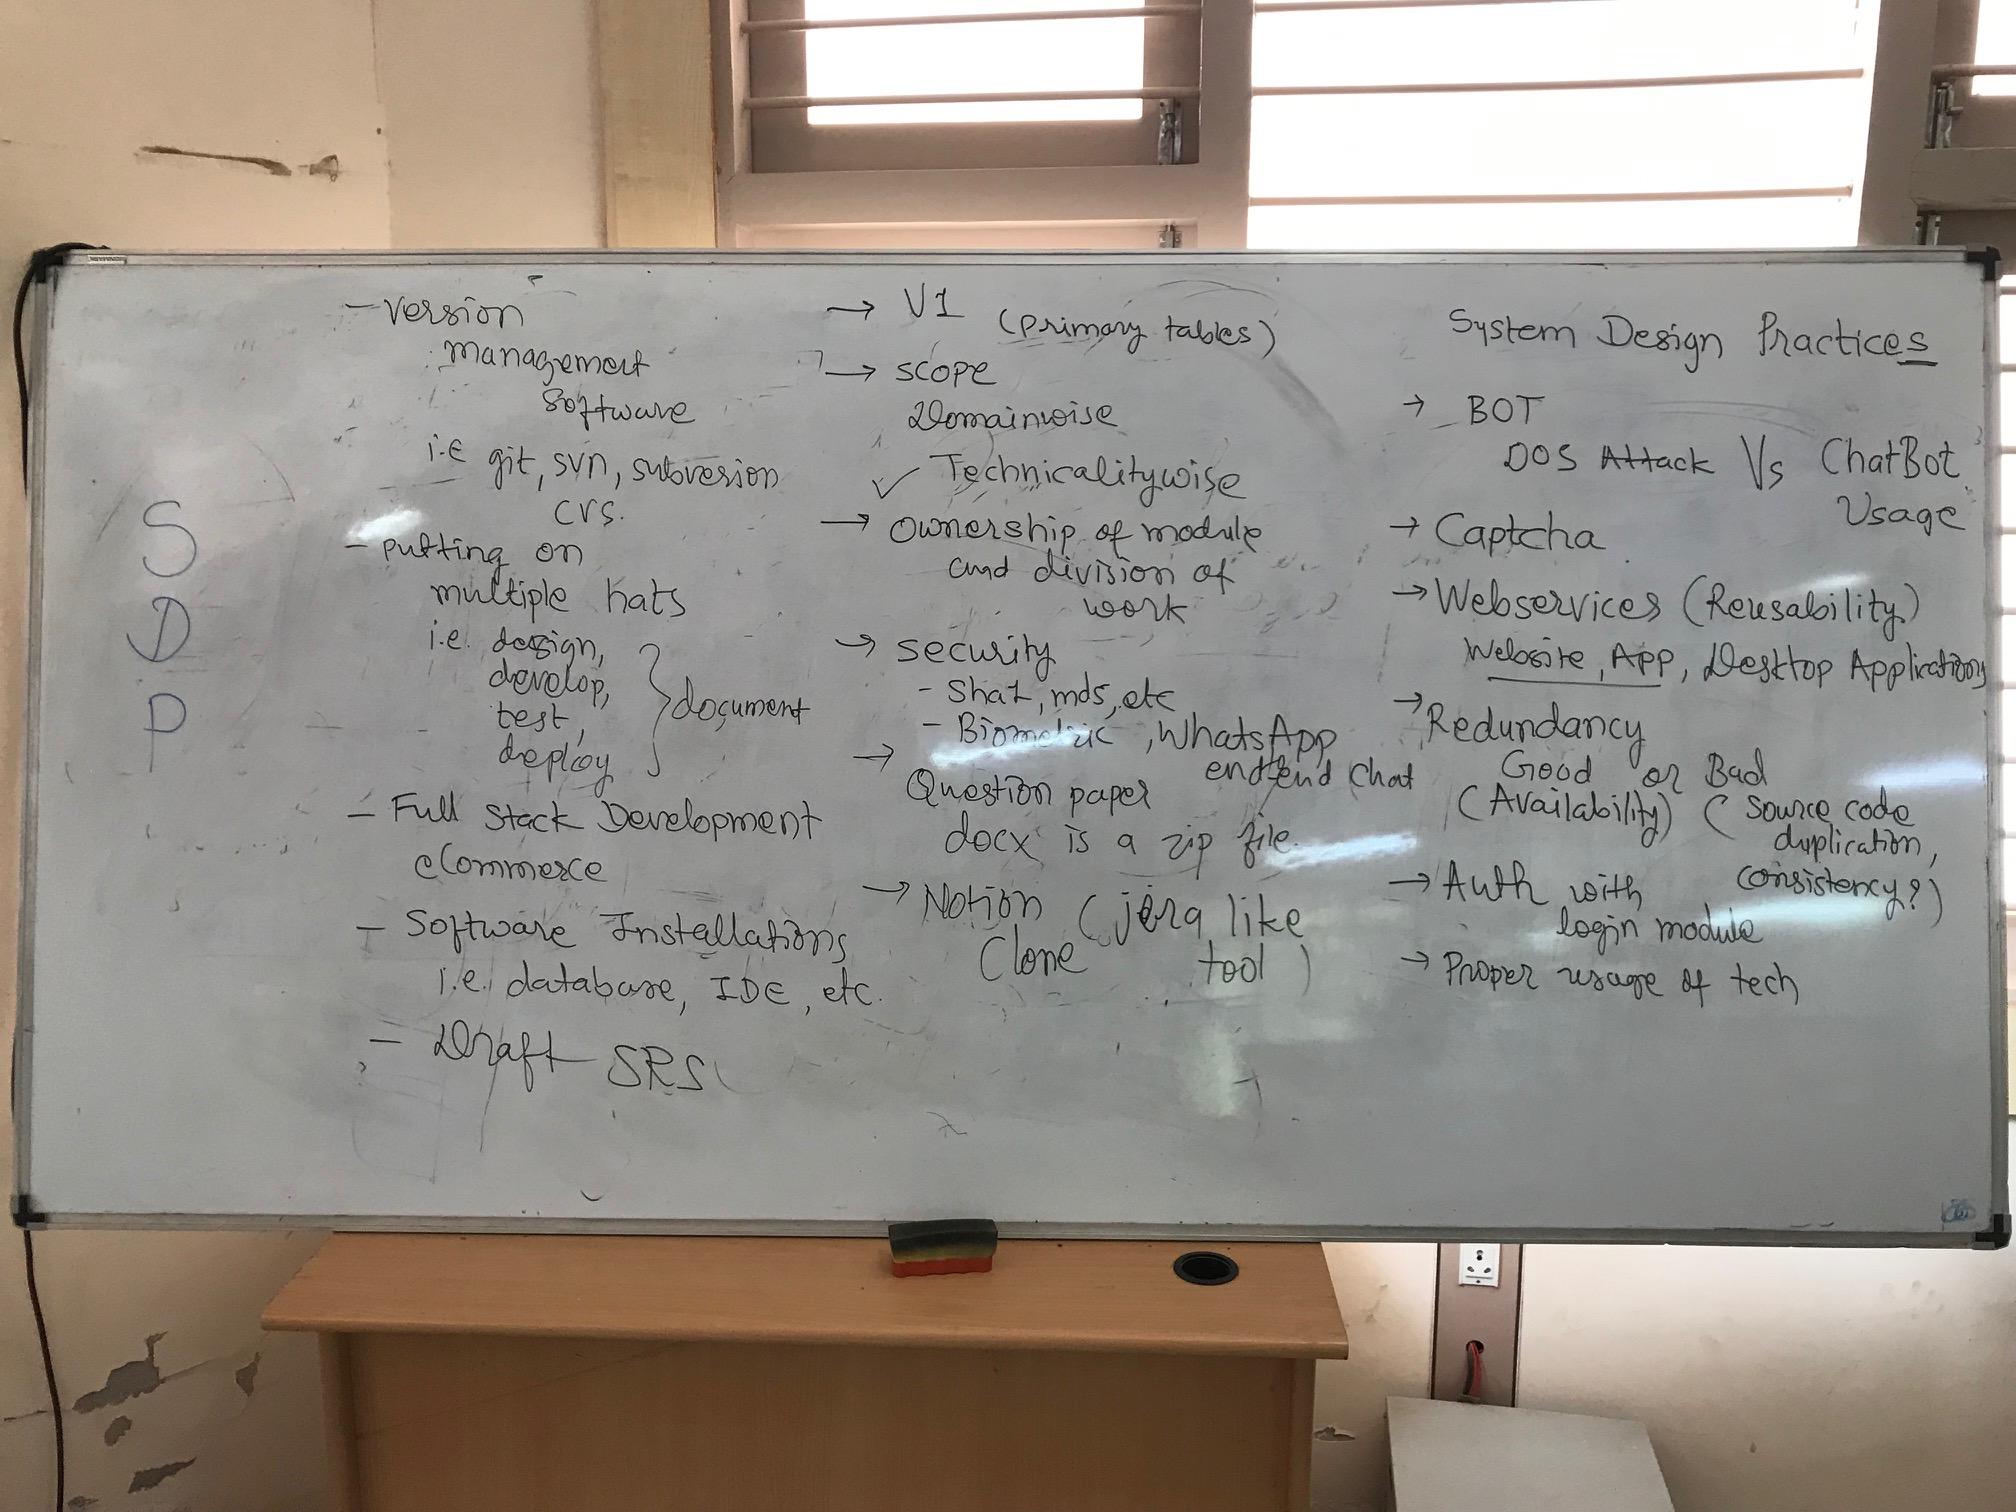 S
D
P
- Version
management
Software
i.e git, svn, subversion
cvs.
- putting on
multiple hats
i.e. design,
develop,
test,
deploy
} document
- Full Stack Development
eCommerce
- Software Installations
i.e. database, IDE, etc.
- Draft SRS
→ V1 (primary tables)
→ scope
Domainwise
✓ Technicalitywise
→ Ownership of module
and division of
work
→ security
- Sha1, md5, etc
- Biometric, WhatsApp
end-end chat
→ Question paper
docx is a zip file.
→ Notion (jira like
Clone tool)
System Design Practices
→ BOT
DOS Attack Vs ChatBot
Usage
→ Captcha
→ Webservices (Reusability)
Website, App, Desktop Applications
→ Redundancy
Good or Bad
(Availability) (source code
duplication,
consistency?)
→ Auth with
login module
→ Proper usage of tech